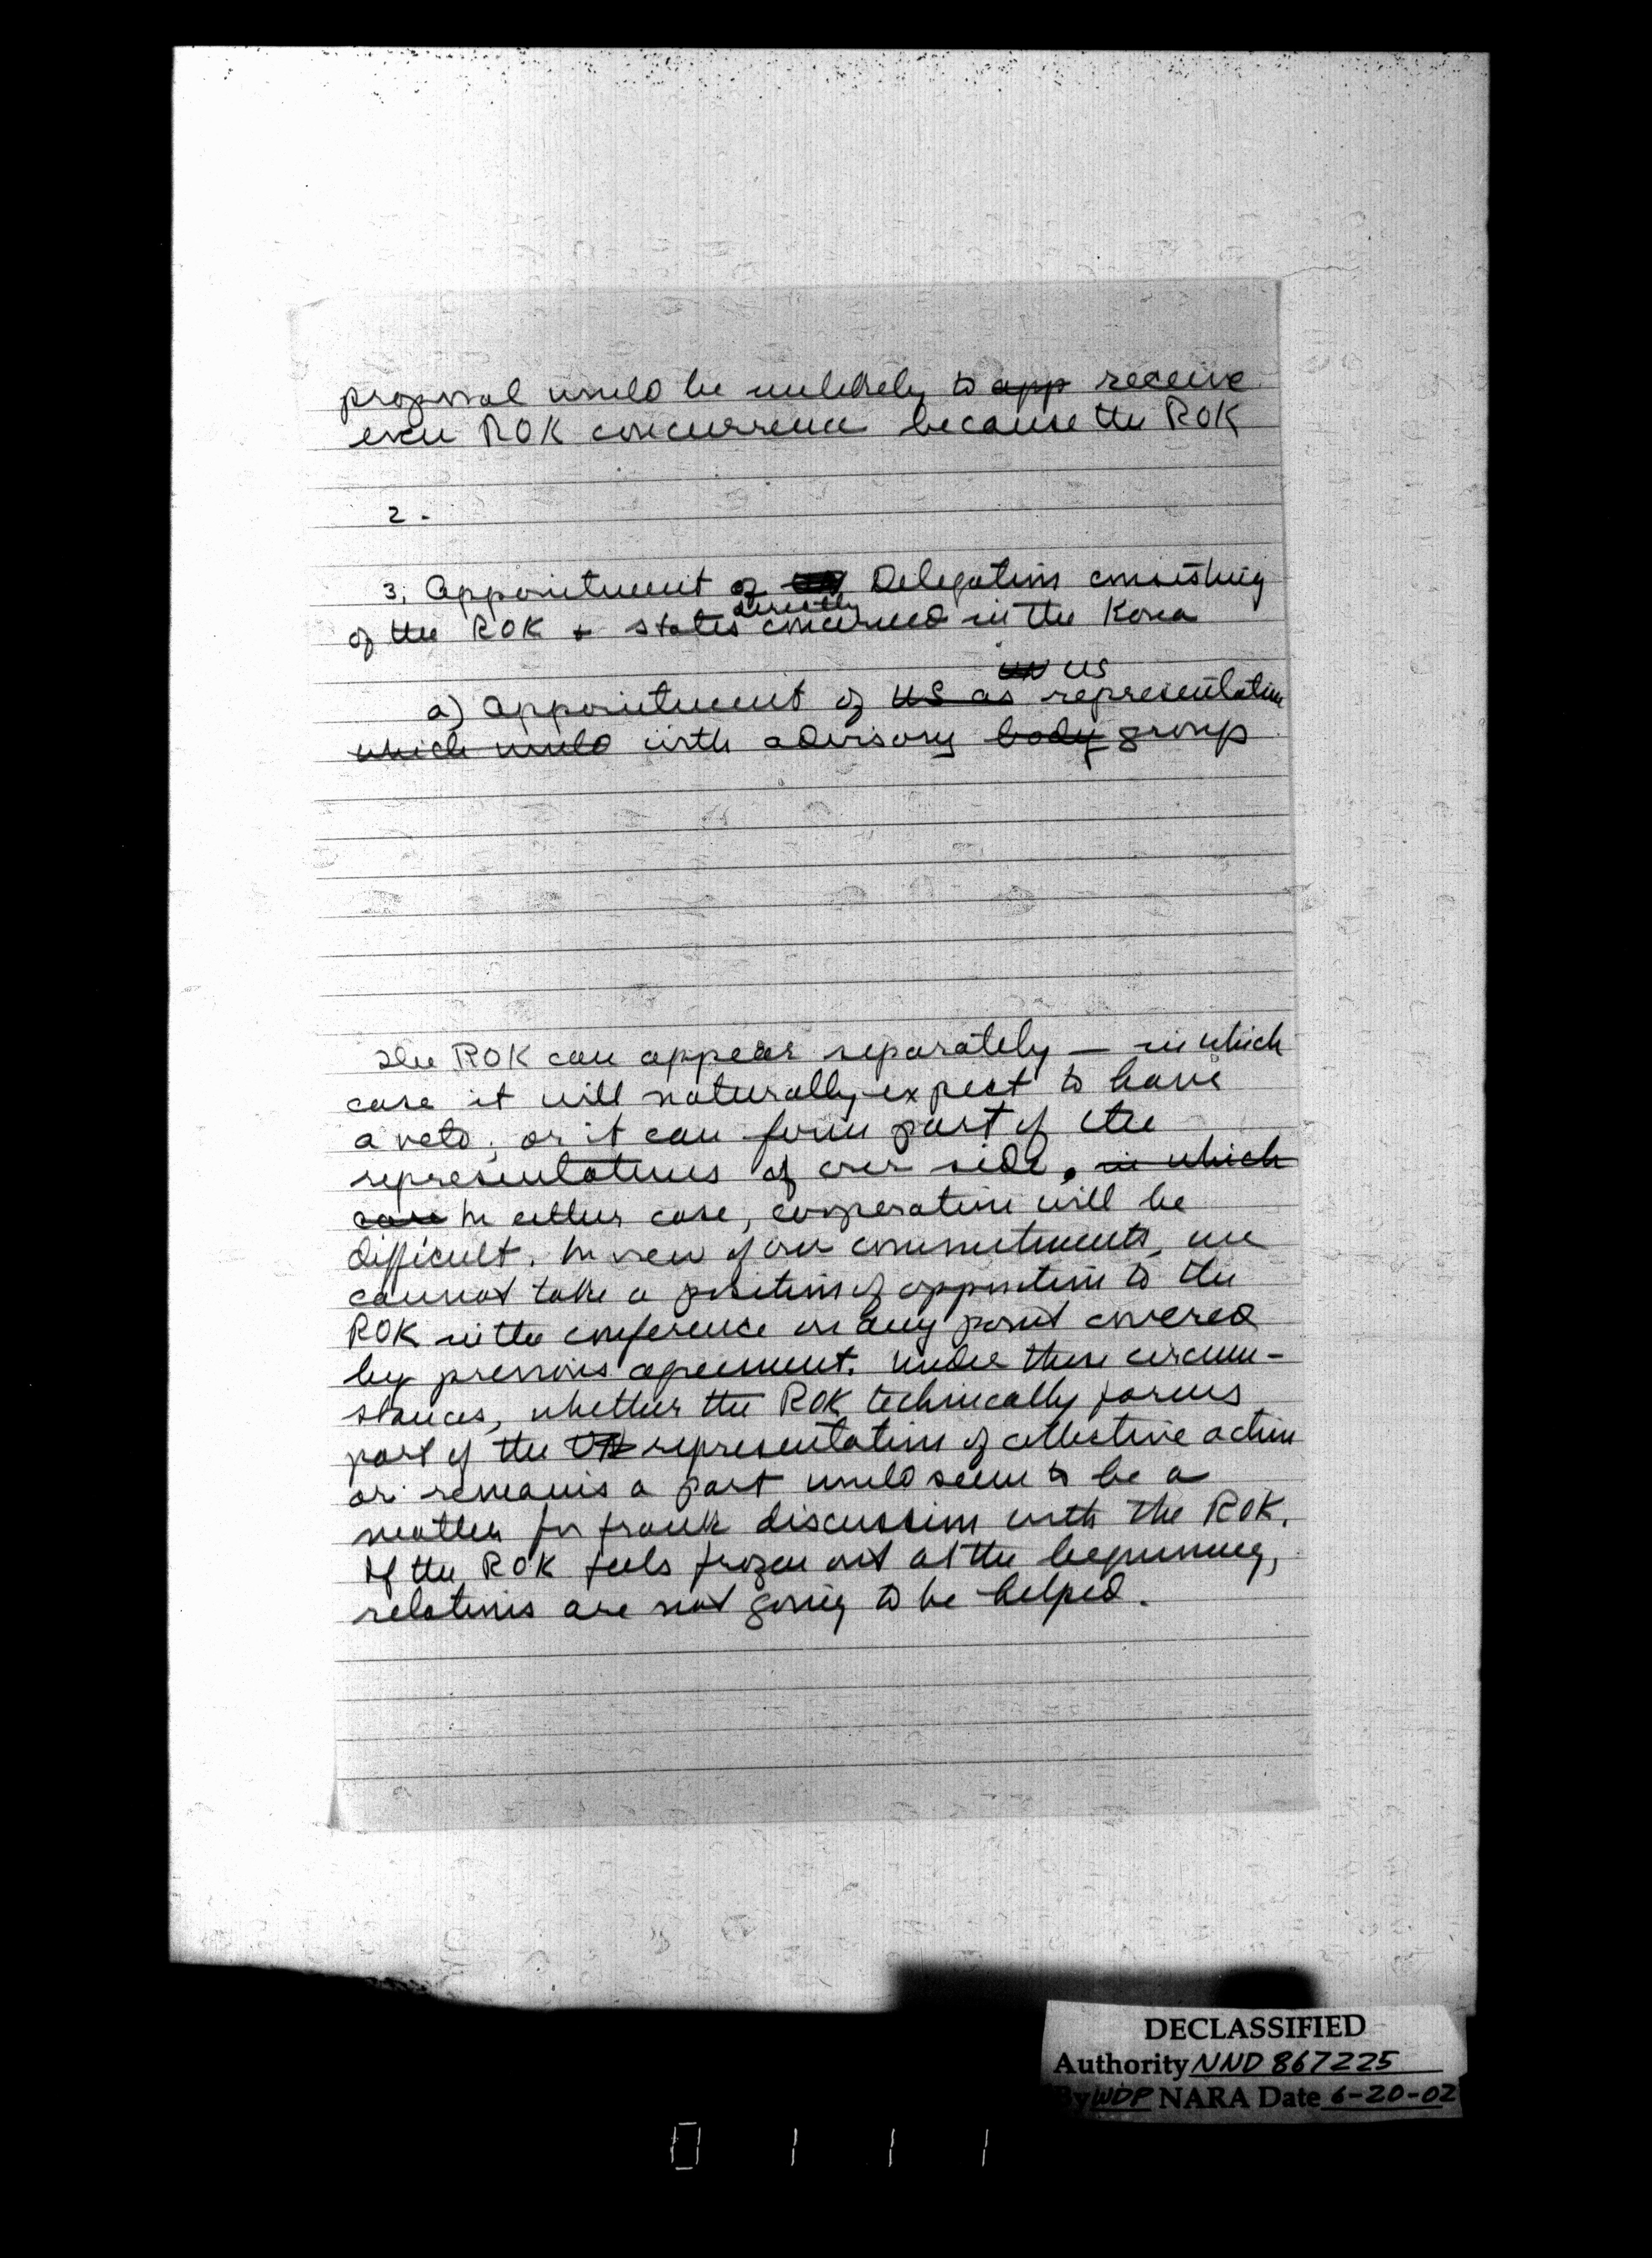 proposal would be unlikely to app receive
even ROK concurrence because the ROK
2.
3. Appointment of Delegation consisting
directly
of the ROK + states concerned in the Korea
UN US
a) Appointment of US as representation
which would with advisory body group
The ROK can appear separately — in which
case it will naturally expect to have
a veto; or it can form part of the
representations of our side. in which
case In either case, cooperation will be
difficult. In view of our commitments, we
cannot take a position of opposition to the
ROK in the conference on any point covered
by previous agreement. Under these circum-
stances, whether the ROK technically forms
part of the UN representation of collective action
or remains a part would seem to be a
matter for frank discussion with the ROK.
If the ROK feels frozen out at the beginning,
relations are not going to be helped.
DECLASSIFIED
Authority NND 867225
By WDP NARA Date 6-20-02
0 1 1 1